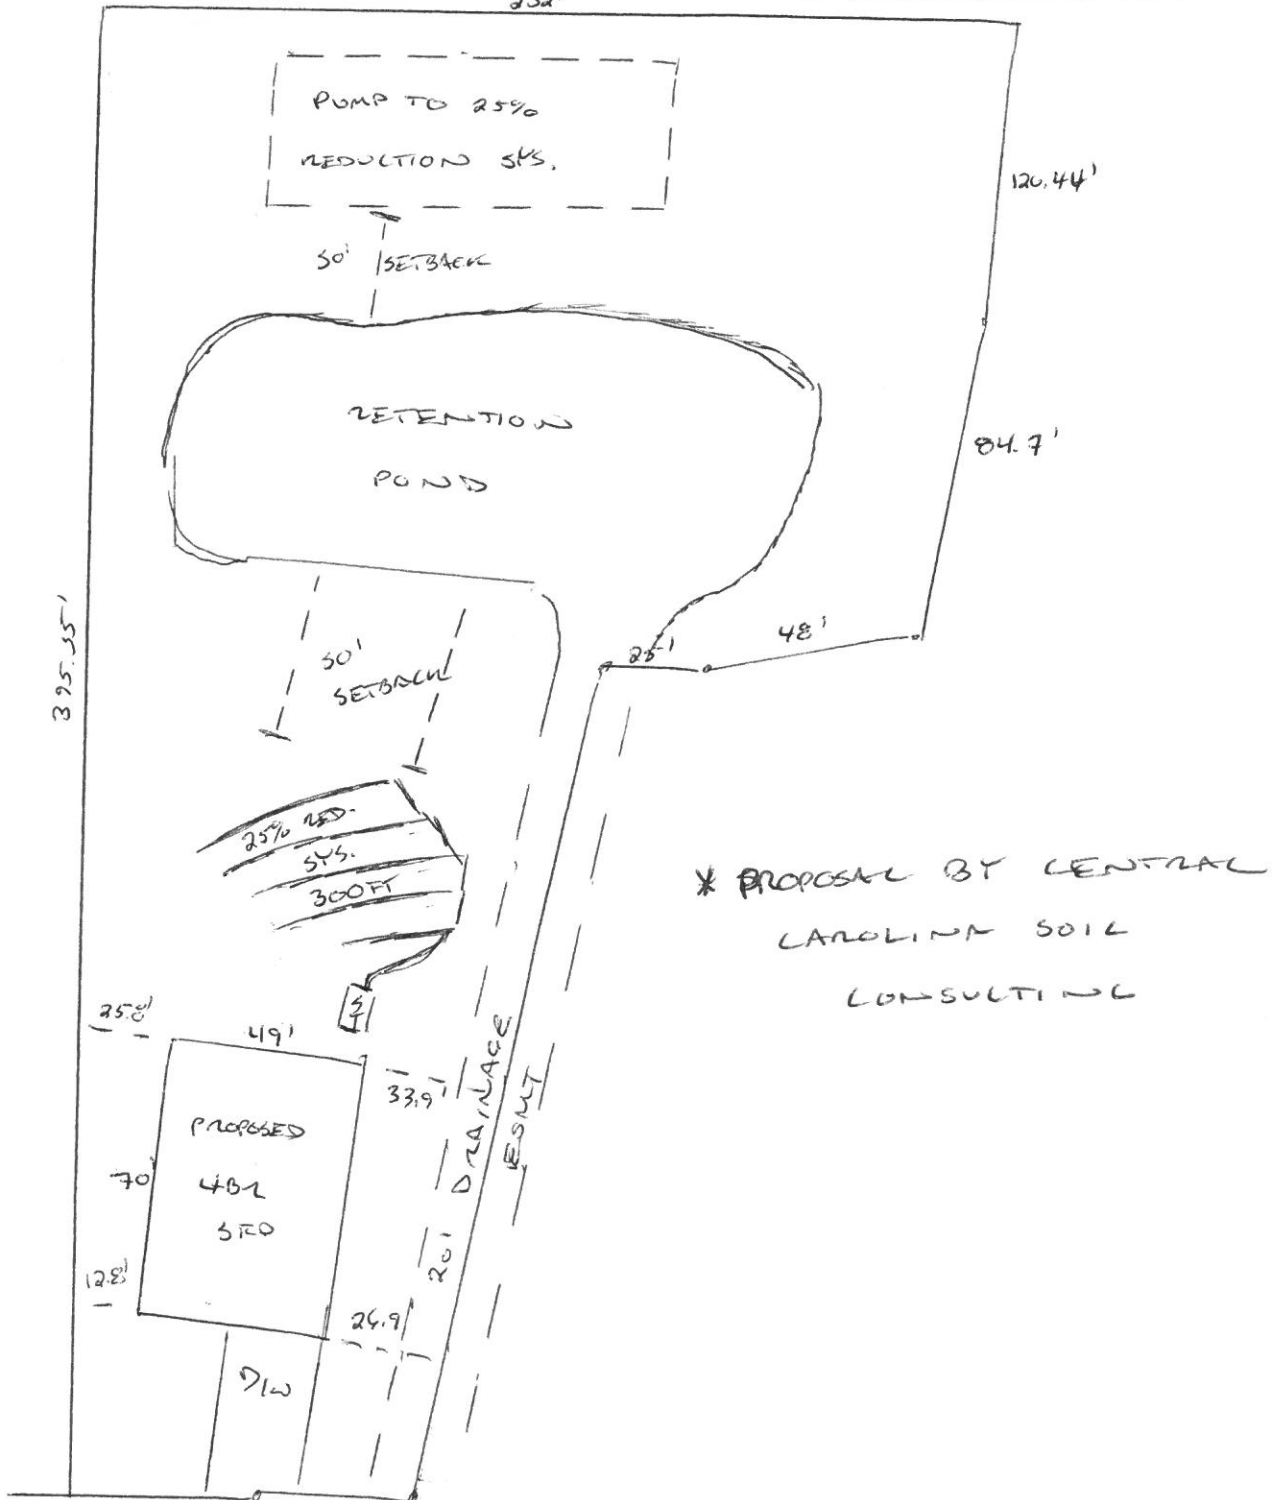 PUMP TO 25%
REDUCTION SYS.
120.44'
50' SETBACK
RETENTION
POND
84.7'
395.35'
50'
SETBACK
25'
48'
25% RED.
SYS.
300FT
* PROPOSAL BY CENTRAL
CAROLINA SOIL
CONSULTING
ST
25.8'
49'
33.9'
PROPOSED
4BR
SFD
70'
12.8'
26.9'
20' DRAINAGE
ESMT
D/W